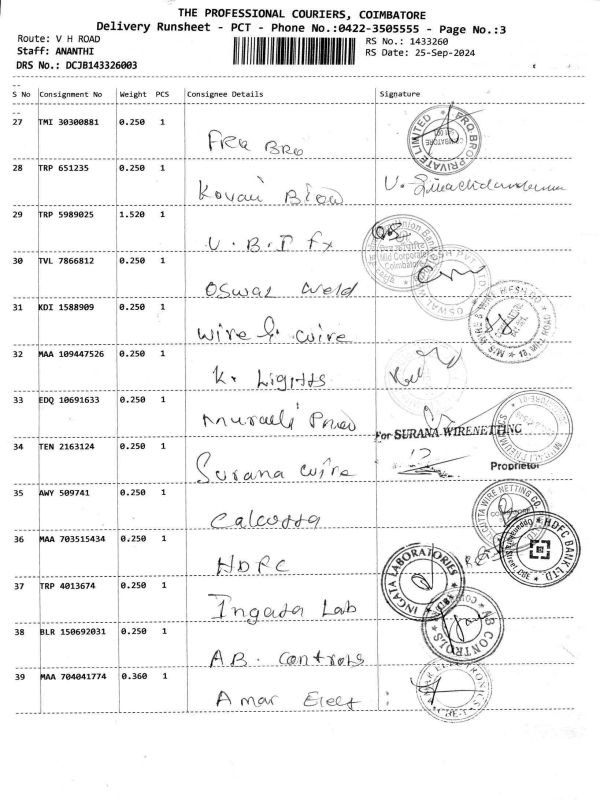 THE PROFESSIONAL COURIERS, COIMBATORE
Delivery Runsheet - PCT - Phone No.:0422-3505555 - Page No.:3
Route: V H ROAD
RS No.: 1433260
Staff: ANANTHI
RS Date: 25-Sep-2024
DRS No.: DCJB143326003
S No Consignment No Weight PCS Consignee Details Signature
27 TMI 30300881 0.250 1
FRQ BRO
PRO-BRO PRIVATE LIMITED
28 TRP 651235 0.250 1
Kovai Blow
29 TRP 5989025 1.520 1
U.B.I fx
Union Bank
Mid Corporate
Coimbatore
30 TVL 7866812 0.250 1
Oswal weld
OSWAL PVT LTD
31 KDI 1588909 0.250 1
wire & wire
M/S WIRE & WIRE
32 MAA 109447526 0.250 1
K. Lights
33 EDQ 10691633 0.250 1
Murali Pneu
For SURANA WIRENETTING
34 TEN 2163124 0.250 1
Proprietor
Surana wire
35 AWY 509741 0.250 1
Calcutta
WIRE NETTING CO.
36 MAA 703515434 0.250 1
HDFC
HDFC BANK LTD
37 TRP 4013674 0.250 1
Ingata Lab
INGATA LABORATORIES
38 BLR 150692031 0.250 1
A.B. Controls
AB CONTROLS
39 MAA 704041774 0.360 1
Amar Elect
AMAR ELECTRONICS
CBE-1